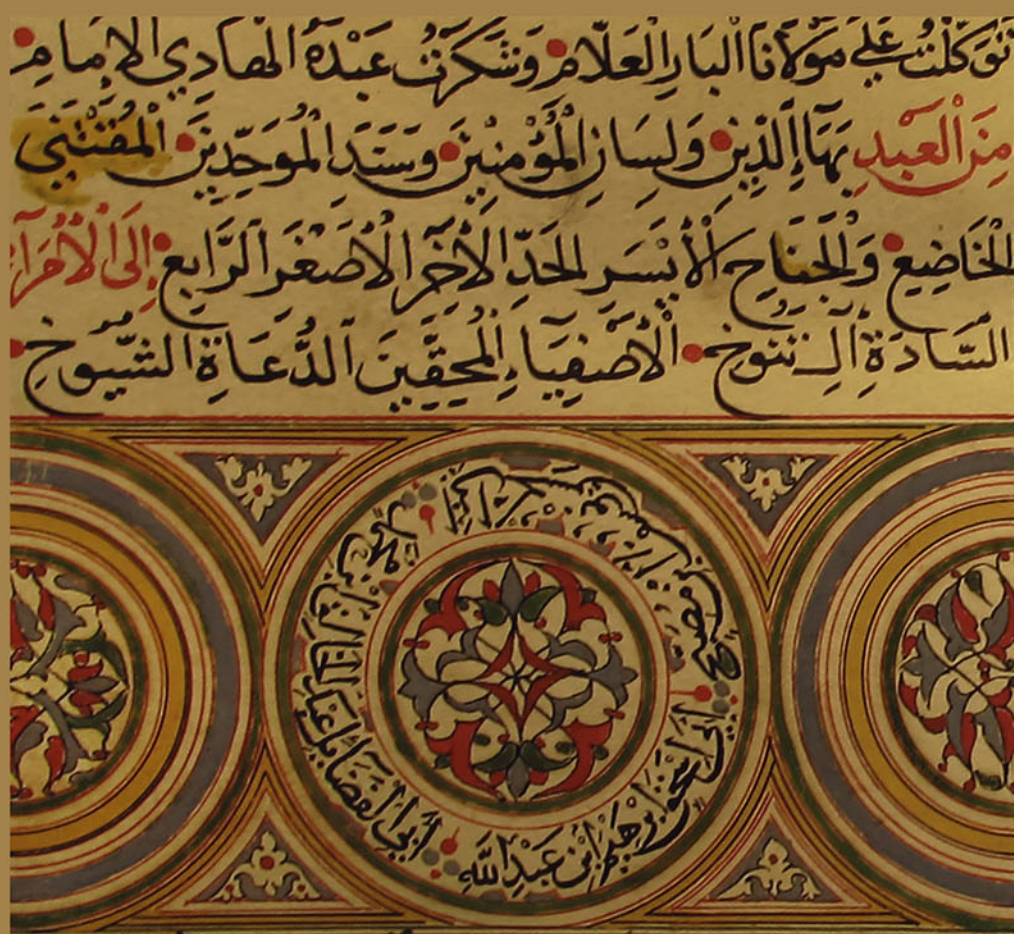 توكلت علي مولانا البار العلام وشكرت عبده الهادي الإمام
من العبد بهاء الدين ولسان المؤمنين وسند الموحدين المقتنى
الخاضع والجناح الأيسر الحد الآخر الأصغر الرابع إلى الأمرآء
السادة آل تنوخ الأصفياء المحقين الدعاة الشيوخ
أبي إسحق إبرهيم ابن عبد الله
أبي الفضائل عبد